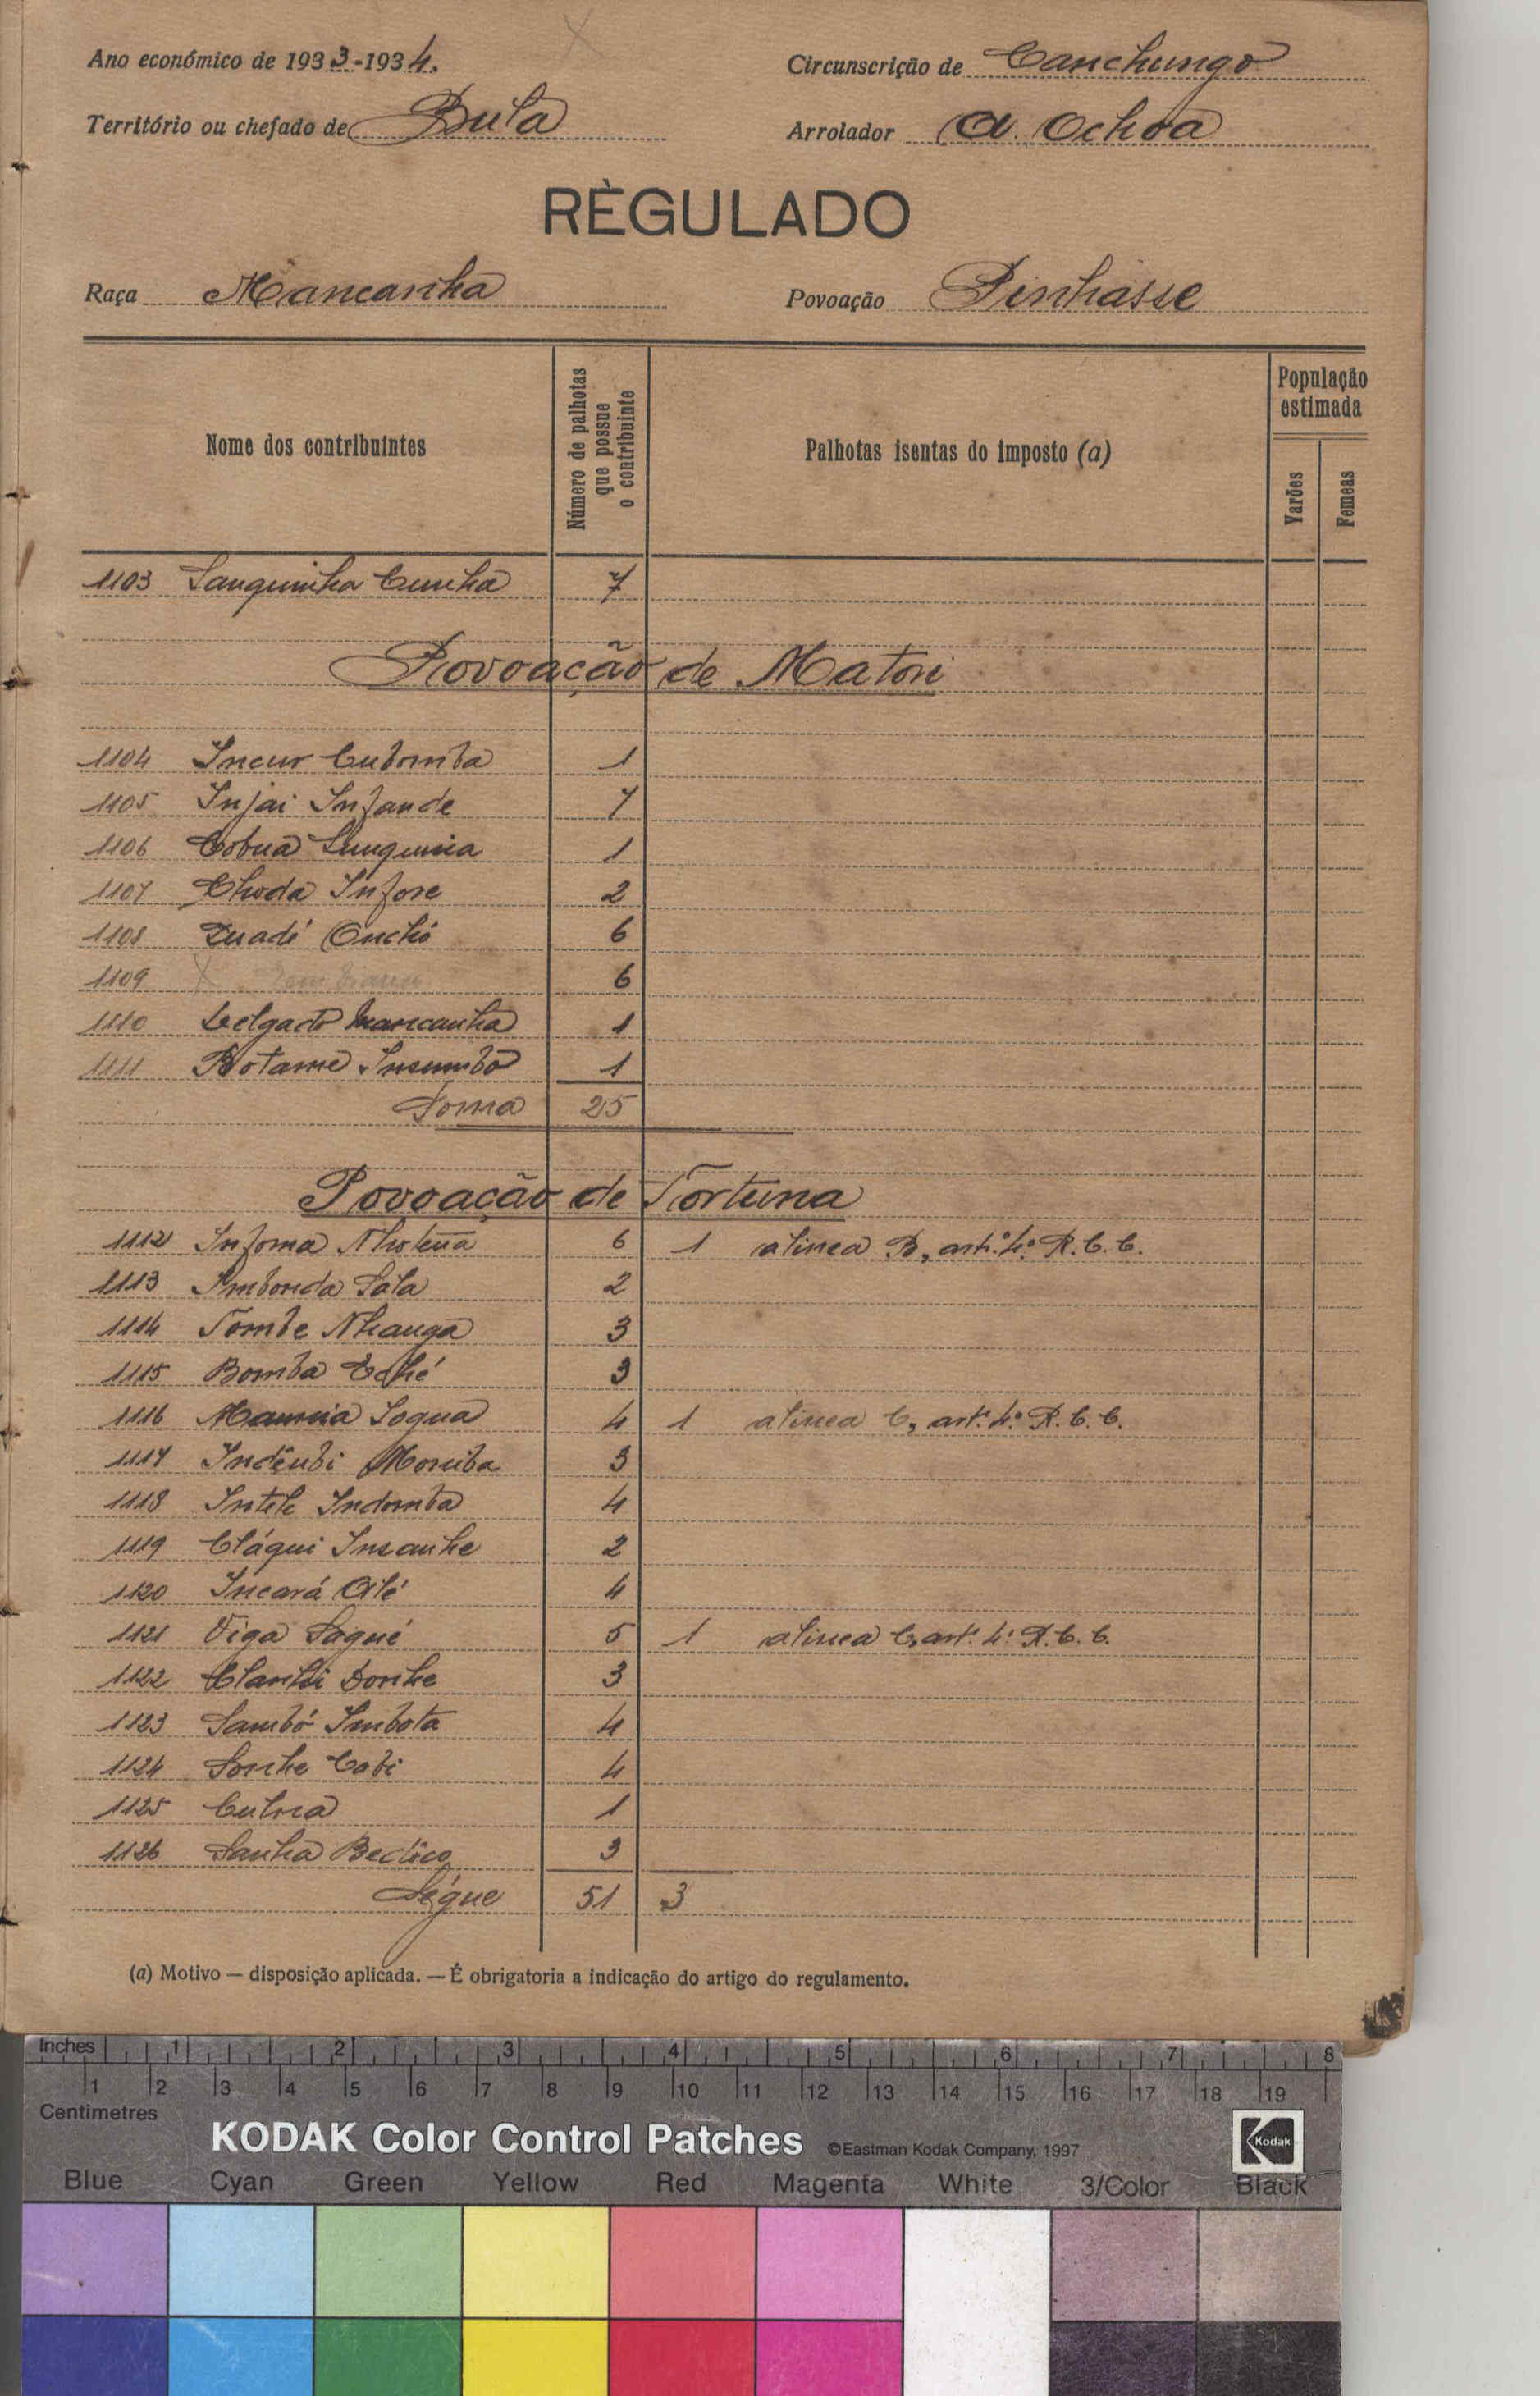 Ano económico de 1933-1934.
Circunscrição de Canchungo
Território ou chefado de Bula
Arrolador A. Ochoa
RÈGULADO
Raça Mancanha
Povoação Pinhasse
Nome dos contribuintes
Número de palhotas que possue o contribuinte
Palhotas isentas do imposto (a)
População estimada
Varões
Femeas
1103 Sanguinha Cunha 7
Povoação de Matori
1104 Incur Cubomba 1
1105 Injai Infande 7
1106 Cobua 1
1107 Choda Infore 2
1108 Quadé Onchó 6
1109 X 6
1110 Delgado Mancanha 1
1111 Botame Insumbo 1
Soma 25
Povoação de Fortuna
1112 Infoma 6 1 alinea B, art.º 4.º R. C. C.
1113 Imbonda Sala 2
1114 Tombe Nhanga 3
1115 Bomba 3
1116 Mamia Soqua 4 1 alinea C, art.º 4.º R. C. C.
1117 Indênbi Moniba 3
1118 Intele Indomba 4
1119 Cláqui Insanhe 2
1120 Incará Alé 4
1121 Viga Sagué 5 1 alinea C, art.º 4.º R. C. C.
1122 Clanhi Donhe 3
1123 Sambó Imbota 4
1124 Sonhe Cabi 4
1125 1
1126 Sanha Bedico 3
Ségue 51 3
(a) Motivo — disposição aplicada. — É obrigatoria a indicação do artigo do regulamento.
Inches 1 2 3 4 5 6 7 8
1 2 3 4 5 6 7 8 9 10 11 12 13 14 15 16 17 18 19
Centimetres
KODAK Color Control Patches ©Eastman Kodak Company, 1997 Kodak
Blue Cyan Green Yellow Red Magenta White 3/Color Black